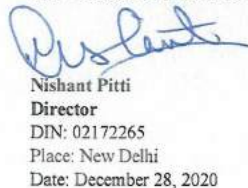 Nishant Pitti
Director
DIN: 02172265
Place: New Delhi
Date: December 28, 2020